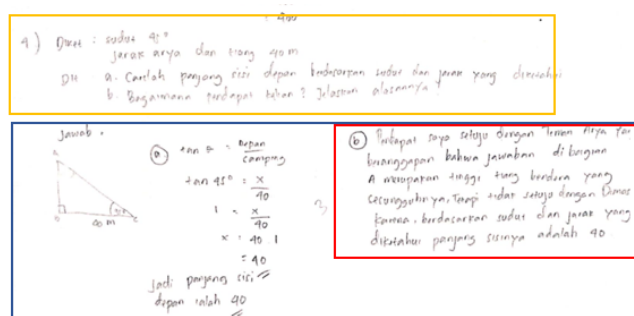 4) Diket : sudut 45°
jarak arya dan tiang 40 m
DH : a. Carilah panjang sisi depan berdasarkan sudut dan jarak yang diketahui
b. Bagaimana pendapat kalian? Jelaskan alasannya!
Jawab :
a) tan θ = Depan
samping
tan 45° = x
40
1 = x
40
x = 40 . 1
= 40
Jadi panjang sisi
depan ialah 40
40 m
C
b) Pendapat saya setuju dengan Teman Arya
beranggapan bahwa jawaban dibagian
A merupakan tinggi tiang bendera yang
sesungguhnya, Tetapi tidak setuju dengan Dimas
karena, berdasarkan sudut dan jarak yang
diketahui panjang sisinya adalah 40.